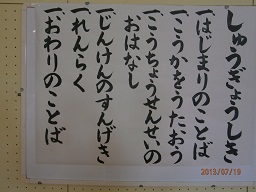 しゅうぎょうしき
一、はじまりのことば
一、こうかをうたおう
一、こうちょうせんせいの
おはなし
一、じんけんのすんげき
一、れんらく
一、おわりのことば
2013/07/19